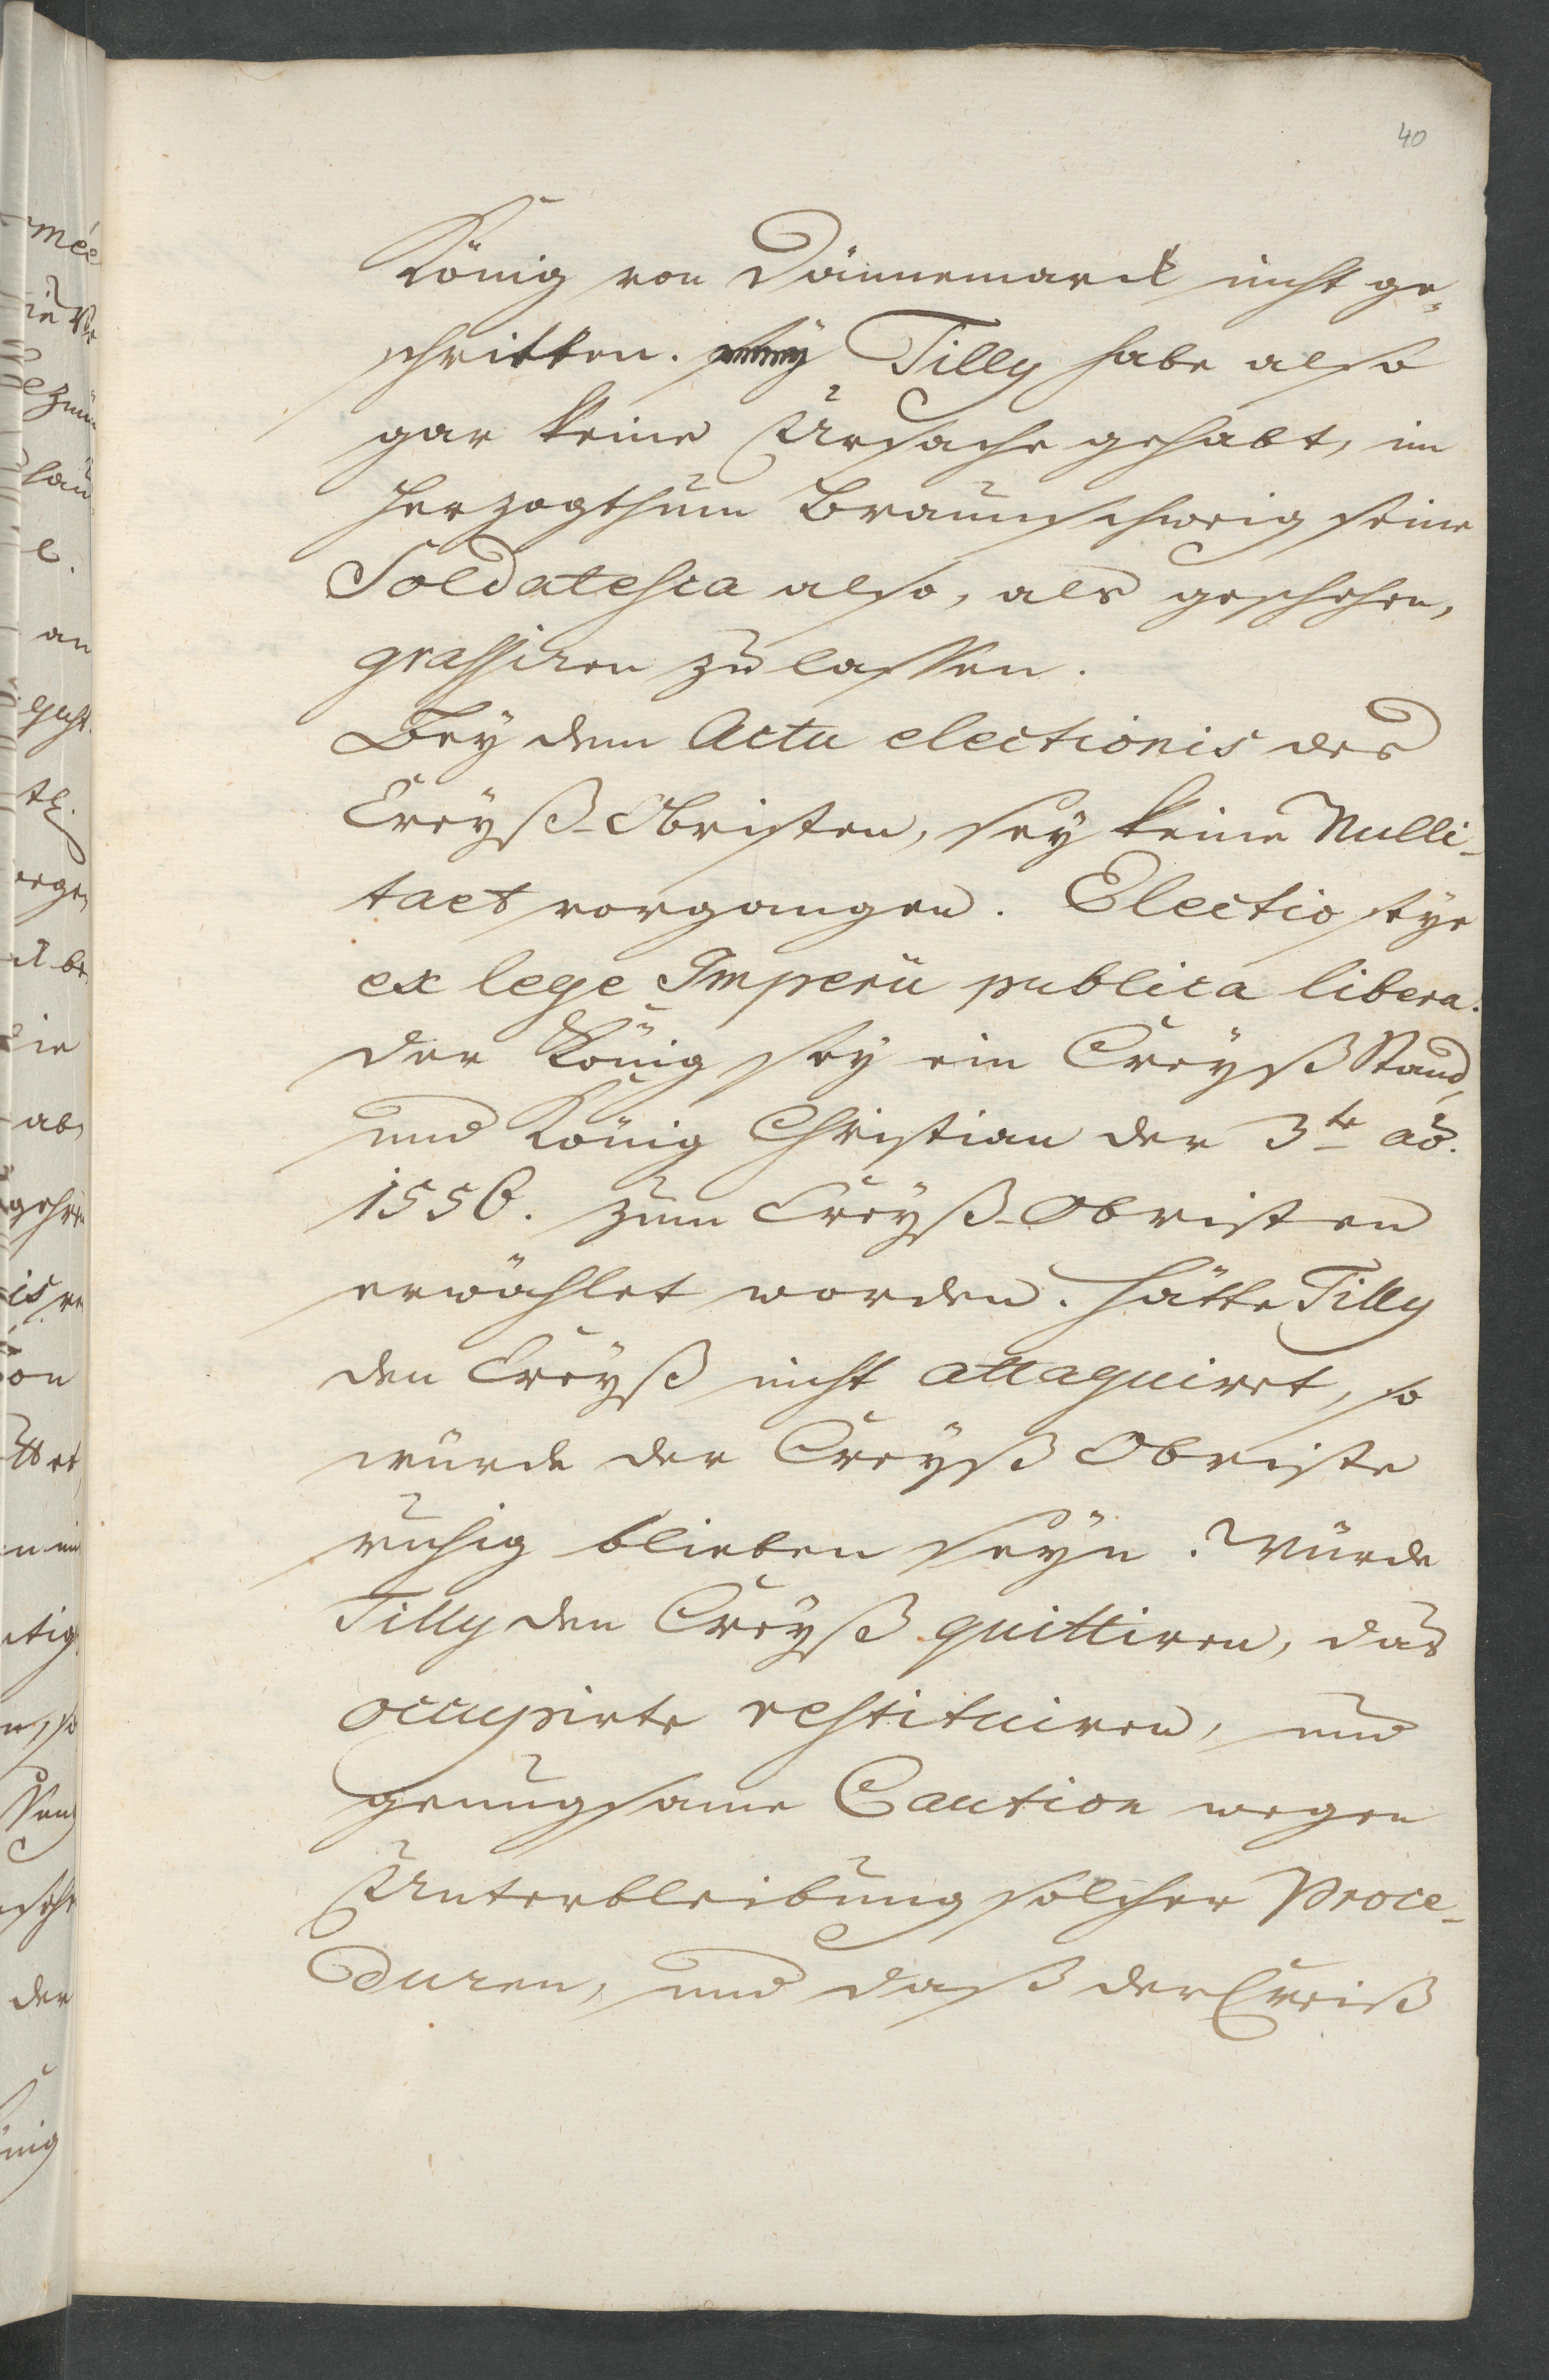 40
König von Dännemarck nicht ge-
schritten. Tilly habe also
gar keine Ursache gehabt, im
Herzogthum Braunschweig seine
Soldatesca also, als geschehen,
grassiren zu lassen.
Bey dem Actu electionis des
Creyß-Obristen, sey keine Nulli-
taet vorgangen. Electio seye
ex lege Imperii publica libera.
der König sey ein Creyß Stand,
und König Christian der 3te ao.
1556. zum Creyß-Obristen
erwählet worden. Hätte Tilly
den Creyß nicht attaquiret, so
würde der Creyß Obriste
ruhig blieben seyn. Würde
Tilly den Creyß quittiren, das
occupirte restituiren, und
genugsame Caution wegen
Unterbleibung solcher Proce-
duren, und daß der Creiß